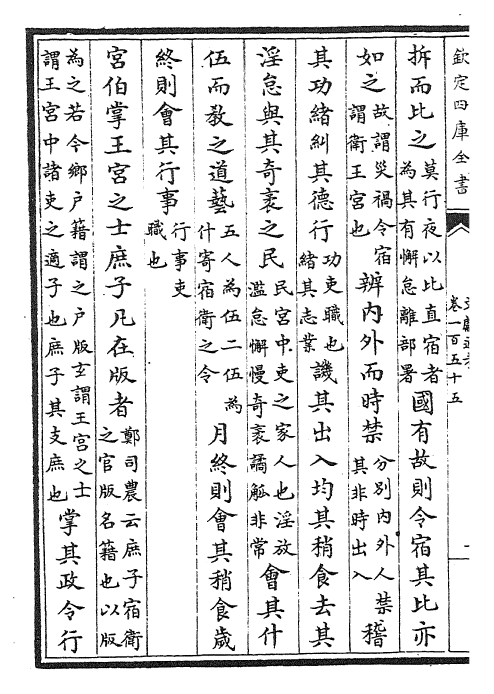 欽定四庫全書
卷一百五十五
拆而比之莫行夜以比直宿者為其有懈怠離部署國有故則令宿其比亦
如之故謂災禍令宿謂衛王宮也辨内外而時禁分别内外人禁其非時出入稽
其功緒糾其德行功吏職也緒其志業譏其出入均其稍食去其
淫怠與其奇衺之民民宮中吏之家人也淫放濫怠懈慢奇衺譎觚非常會其什
伍而敎之道藝五人為伍二伍為什寄宿衛之令月終則會其稍食歲
終則會其行事行事吏職也
宮伯掌王宮之士庶子凡在版者鄭司農云庶子宿衛之官版名籍也以版
為之若今鄉户籍謂之户版玄謂王宮之士謂王宮中諸吏之適子也庶子其支庶也掌其政令行